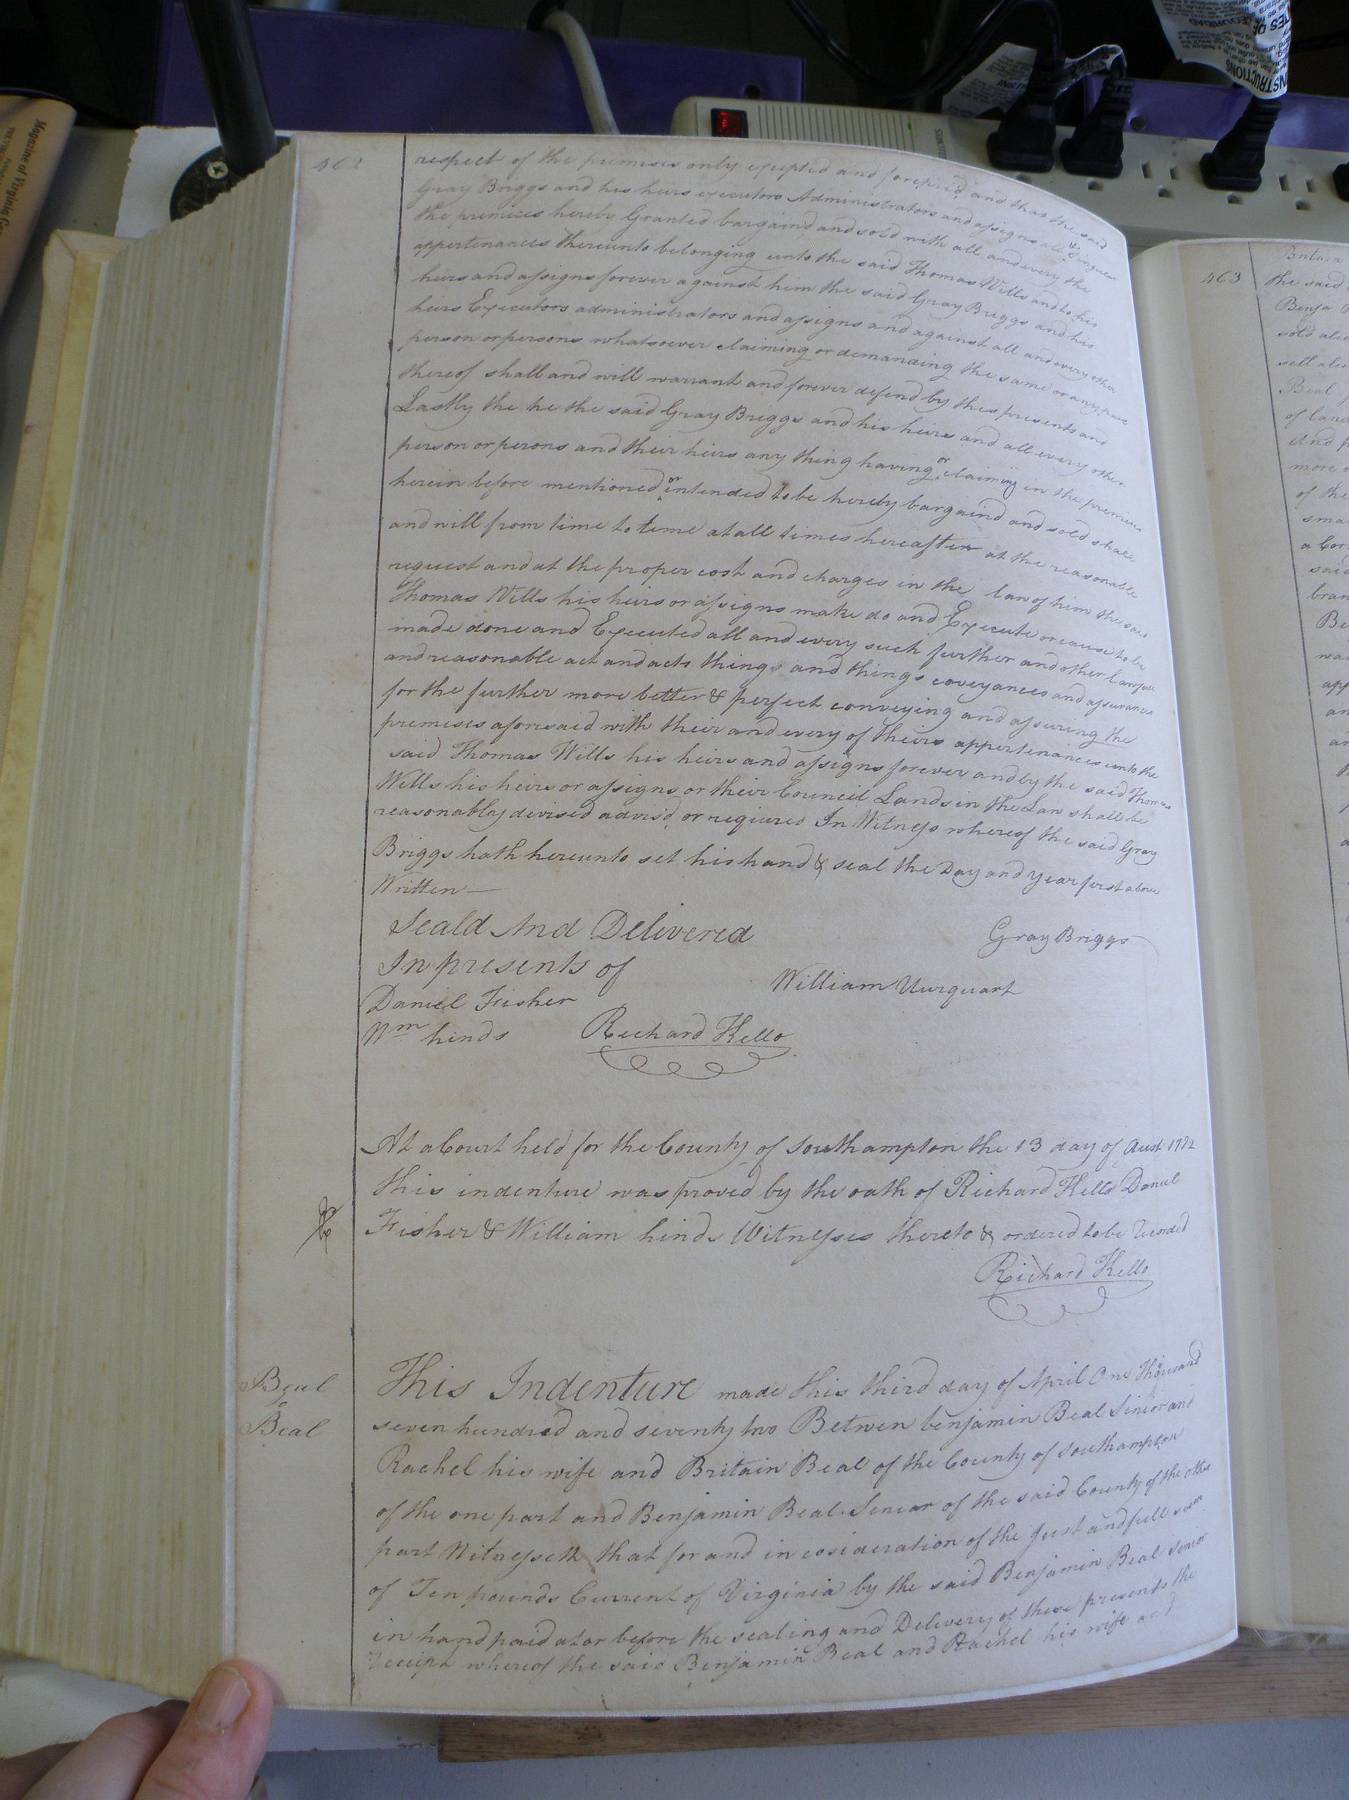 462
respect of the premises only excepted and foreprized and that the said
Gray Briggs and his heirs executors Administrators and assigns all & Singular
the premises hereby Granted bargaind and sold with all and every the
appertenances thereunto belonging unto the said Thomas Wills and to his
heirs and assigns forever against him the said Gray Briggs and his
heirs Executors administrators and assigns and against all and every other
person or persons whatsoever claiming or demanding the same or any part
thereof shall and will warrant and forever defend by thes presents and
Lastly the he the said Gray Briggs and his heirs and all every other
person or perons and their heirs any thing having or claiming in the premises
herein before mentioned or intended to be hereby bargaind and sold shall
and will from time to teme at all times hereafter at the reasonable
request and at the proper cost and charges in the law of him the said
Thomas Wills his heirs or assigns make do and Execute or cause to be
made done and Executed all and every such further and other lawfull
and reasonable act and acts things and things coveyances and assurances
for the further more better & perfect conveying and assuring the
premises aforesaid with their and every of theirs appertenances unto the
said Thomas Wills his heirs and assigns forever and by the said Thomas
Wills his heirs or assigns or their Council Lands in the Law shall be
reasonably devised advis'd or requiered In Witness whereof the said Gray
Briggs hath hereunto set his hand & seal the Day and year first above
Written—
Seald And Delivered
Gray Briggs
In presents of
William Uurquart
Daniel Fisher
Wm hinds Richard Kello
At a Court held for the County of Southampton the 13 day of Aust 1772
this indenture was proved by the oath of Richard Kello Daniel
Fisher & William hinds Witnesses thereto & ordered to be Recorded
Richard Kello
Beal
to
Beal
This Indenture made this third day of April One Thousand
seven hundred and seventy two Betwen benjamin Beal Senior and
Rachel his wife and Britain Beal of the County of Southampton
of the one part and Benjamin Beal Senear of the said County of the other
part Witnesseth that for and in cosideration of the Just and full sum
of Ten pounds Current of Virginia by the said Benjamin Beal
in hand paid at or before the sealing and Delivery of these presents the
receipt whereof the said Benjamin Beal and Rachel his wife and
463
the said
Benja
sold
of land
And
more
of the
a
said
Be
Magazine of Virginia
INSTRUCTIONS